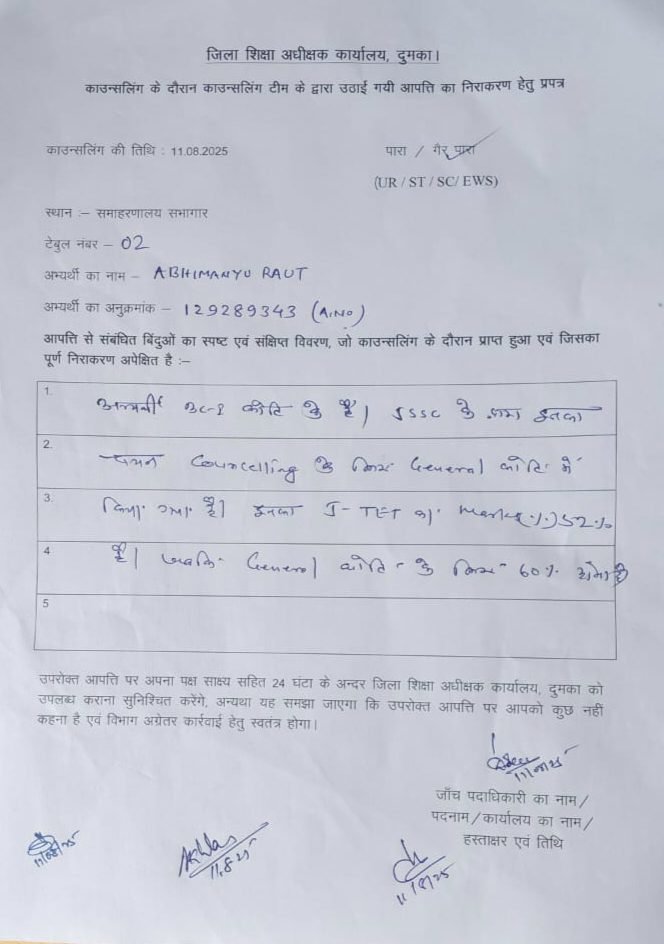 जिला शिक्षा अधीक्षक कार्यालय, दुमका।
काउन्सलिंग के दौरान काउन्सलिंग टीम के द्वारा उठाई गयी आपत्ति का निराकरण हेतु प्रपत्र
काउन्सलिंग की तिथि : 11.08.2025
पारा / गैर पारा
(UR / ST / SC/ EWS)
स्थान :– समाहरणालय सभागार
टेबुल नंबर – 02
अभ्यर्थी का नाम – ABHIMANYU RAUT
अभ्यर्थी का अनुक्रमांक – 129289343 (A.No)
आपत्ति से संबंधित बिंदुओं का स्पष्ट एवं संक्षिप्त विवरण, जो काउन्सलिंग के दौरान प्राप्त हुआ एवं जिसका
पूर्ण निराकरण अपेक्षित है :–
1. अभ्यर्थी BC-1 कोटि के हैं। JSSC के द्वारा इनका
2. चयन Councelling के लिए General कोटि में
3. किया गया है। इनका J-TET का Marks(%) 52%
4 है। जबकि General कोटि के लिए 60% होना है
5
उपरोक्त आपत्ति पर अपना पक्ष साक्ष्य सहित 24 घंटा के अन्दर जिला शिक्षा अधीक्षक कार्यालय, दुमका को
उपलब्ध कराना सुनिश्चित करेंगे, अन्यथा यह समझा जाएगा कि उपरोक्त आपत्ति पर आपको कुछ नहीं
कहना है एवं विभाग अग्रेतर कार्रवाई हेतु स्वतंत्र होगा।
11/08/25
जाँच पदाधिकारी का नाम/
पदनाम/कार्यालय का नाम/
हस्ताक्षर एवं तिथि
11/08/25
11.8.25
11/8/25